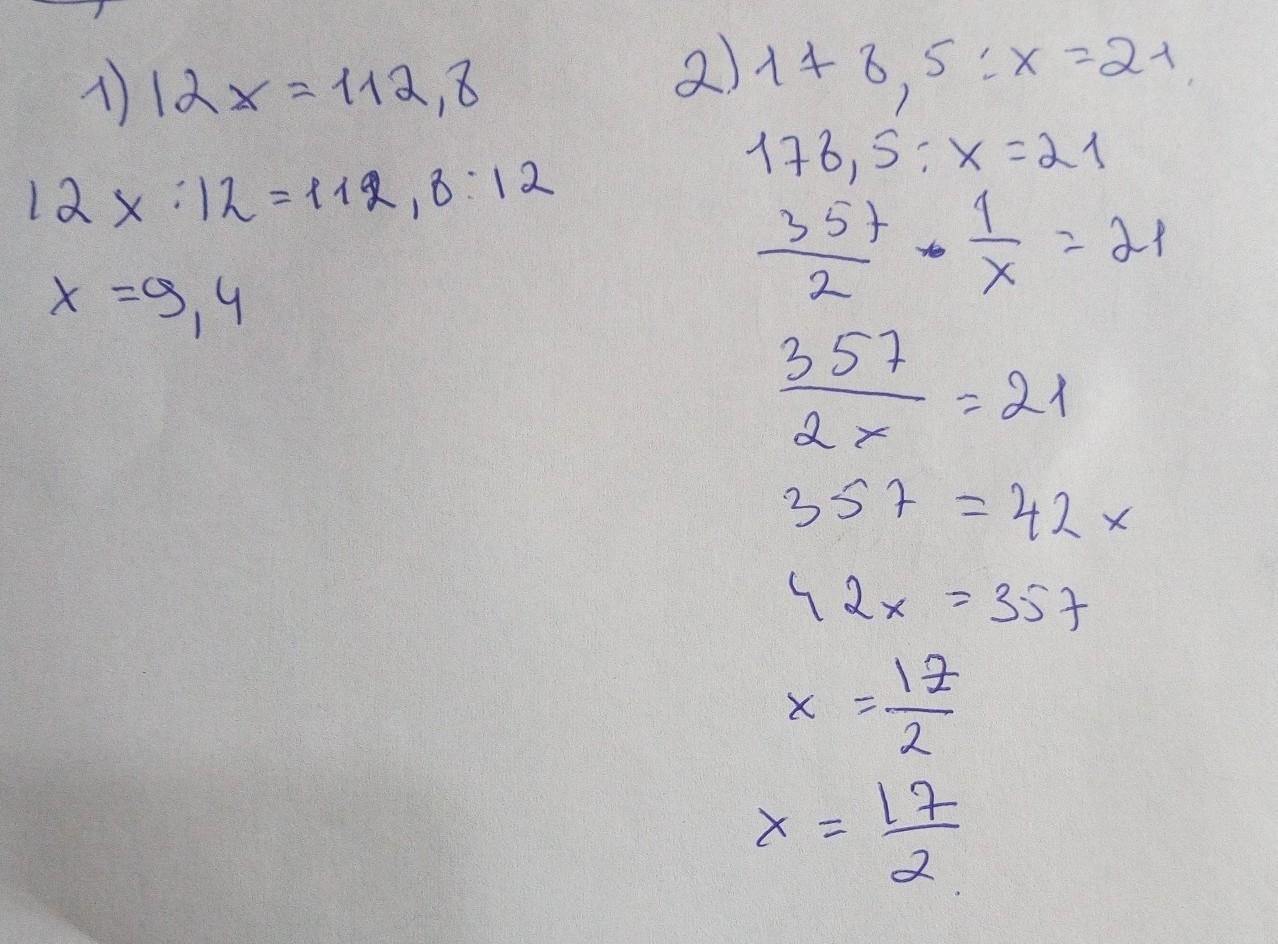 1) 12x = 112,8
12x : 12 = 112,8 : 12
x = 9,4
2) 178,5 : x = 21.
178,5 : x = 21
357/2 · 1/x = 21
357/2x = 21
357 = 42x
42x = 357
x = 17/2
x = 17/2.